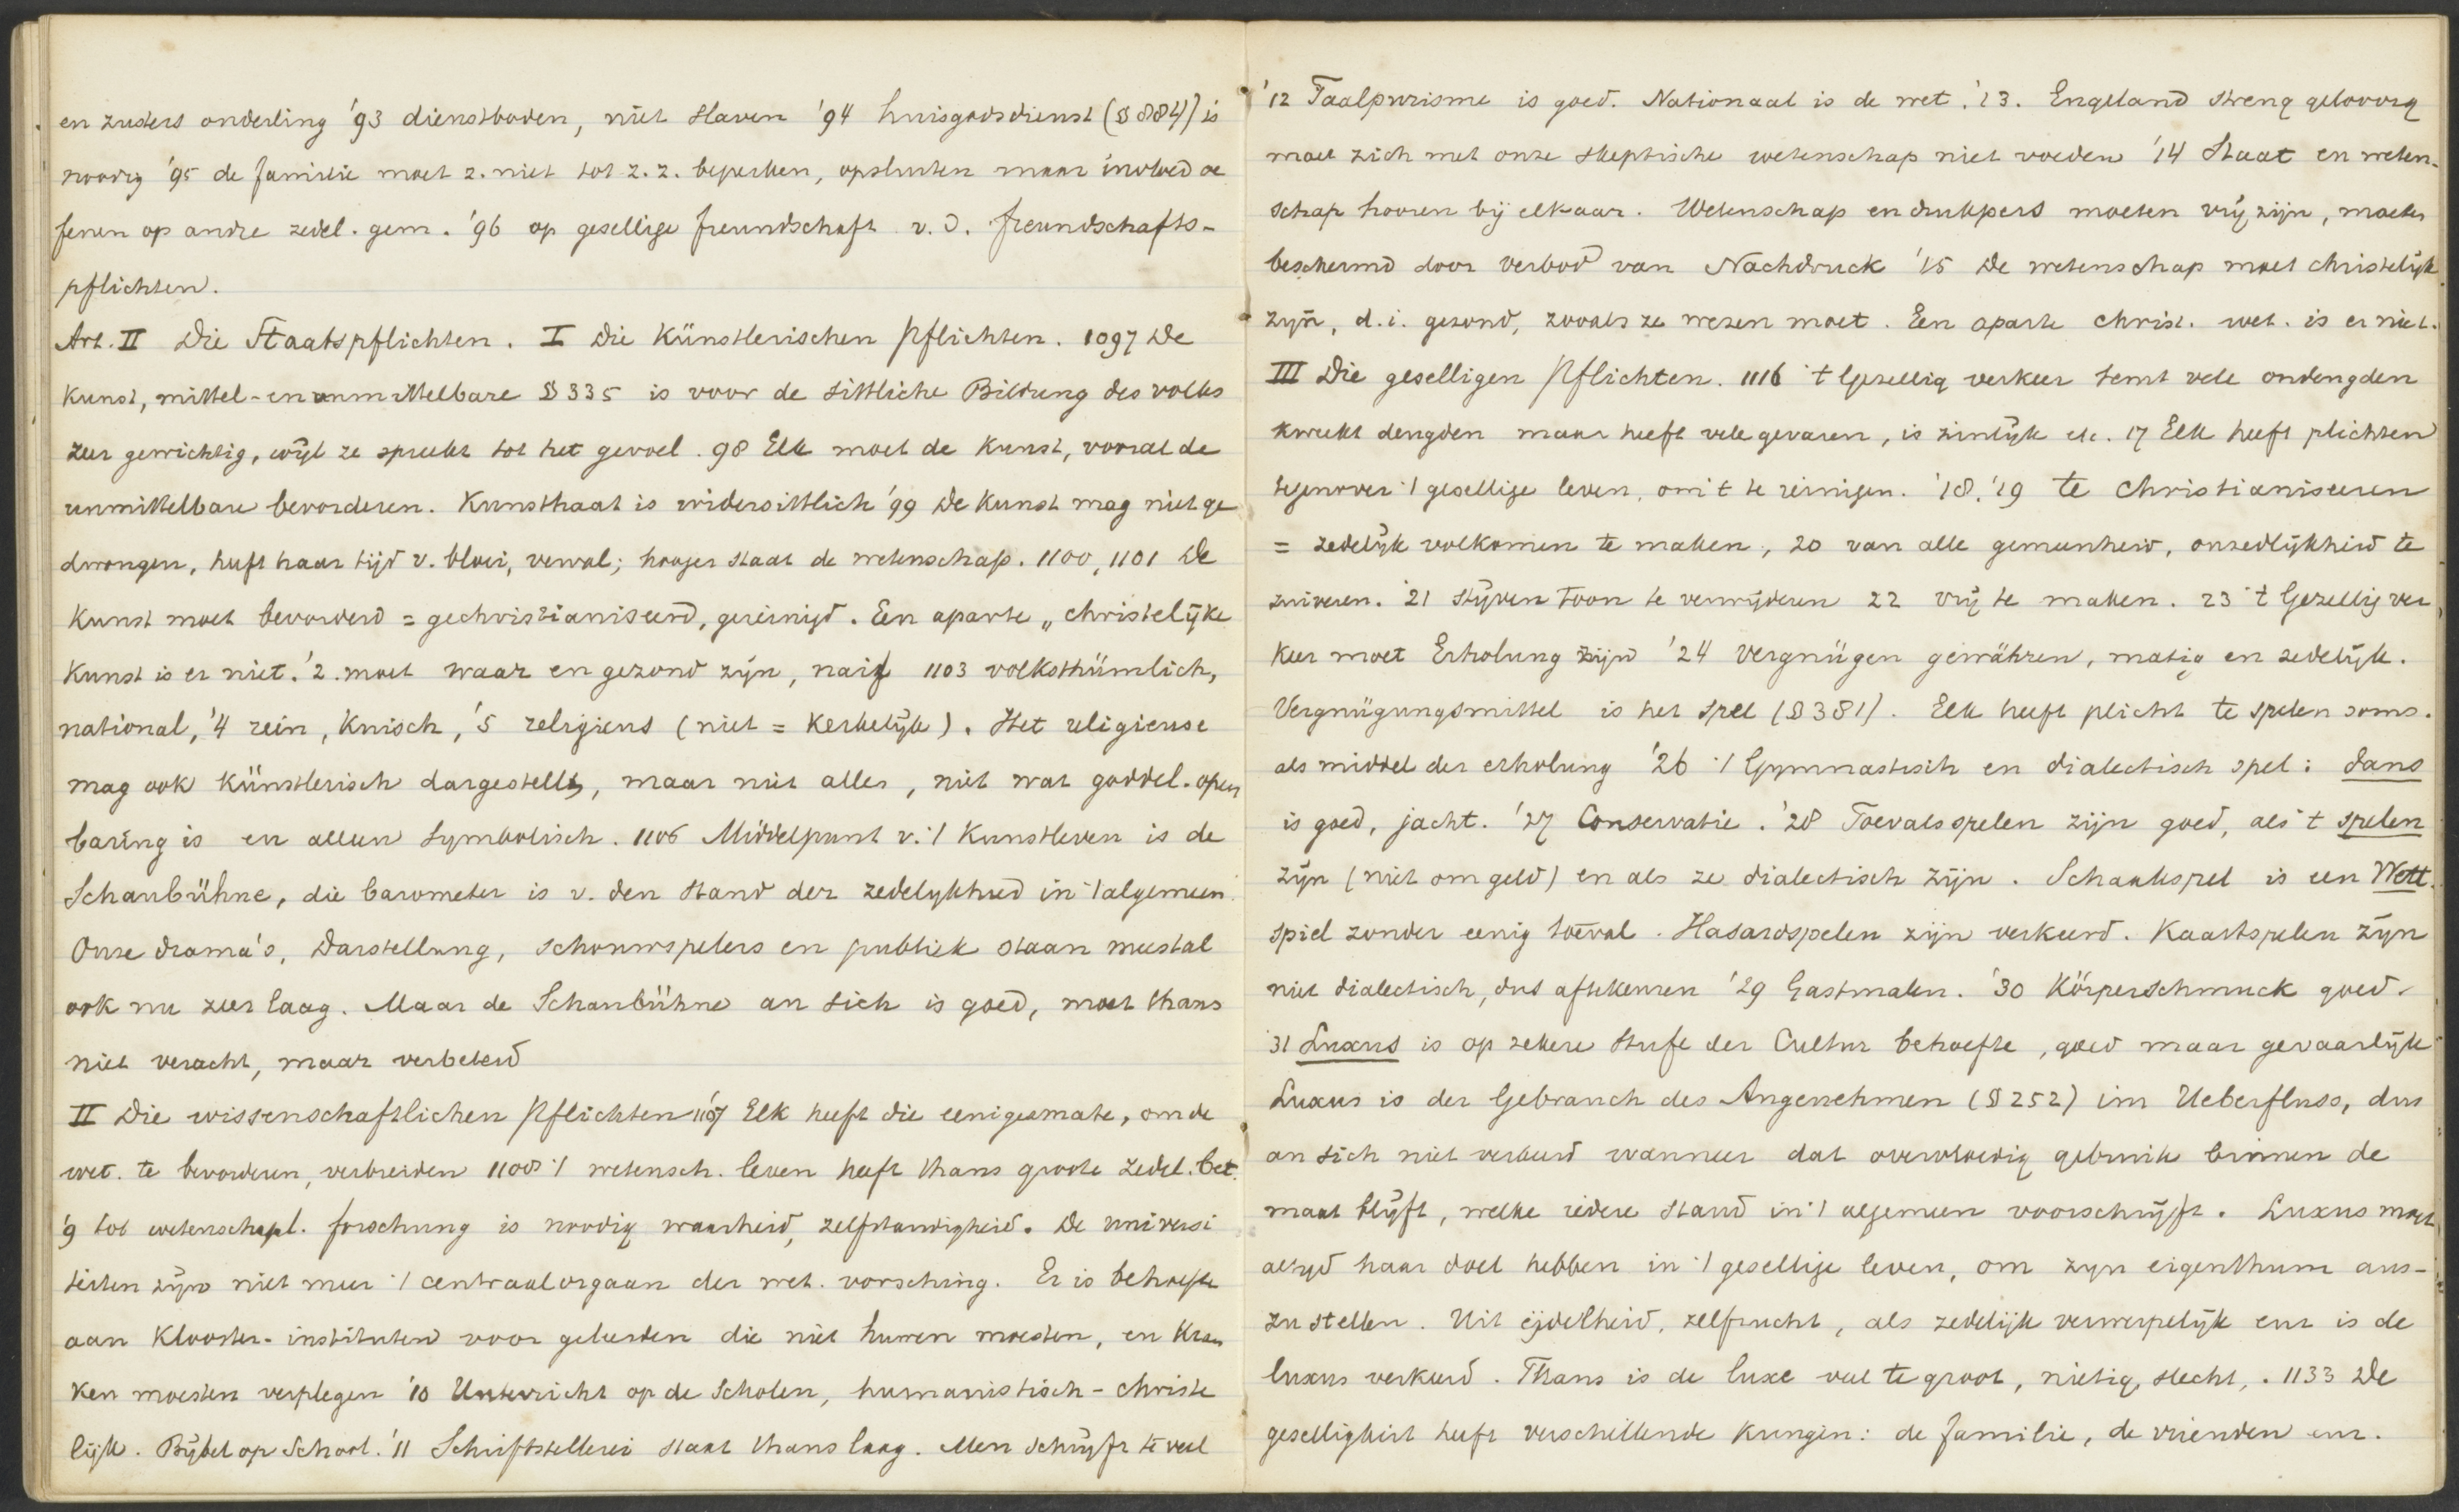 en zusters onderling '93 dienstboden, niet slaven '94 huisgodsdienst (§ 884) is
noodig '95 de familie moet z. niet tot z. z. beperken, opsluiten maar invloed oe
fenen op andre zedel. gem. '96 op gesellige freundschaft v. d. freundschafts-
pflichten.
Art. II Die Staatspflichten. I Die Künstlerischen Pflichten. 1097 De
Kunst, mittel- en unmittelbare § 335 is voor de sittliche Bildung des volks
zeer gewichtig, wijl ze spreekt tot het gevoel. 98 Elk moet de kunst, vooral de
unmittelbare bevorderen. Kunsthaat is widersittlich '99 De kunst mag niet ge
dwongen, heeft haar tijd v. bloei, verval; hooger staat de wetenschap. 1100, 1101 De
Kunst moet bevorderd = gechristianiseerd, gereinigd. Een aparte „christelijke
Kunst is er niet. '2. moet waar en gezond zijn, naif 1103 volksthümlich,
national, '4 rein, Knisch, '5 religieus (niet = Kerkelijk). Het religieuse
mag ook Künstlerisch dargestellt, maar niet alles, niet wat goddel. open
baring is en alleen symbolisch. 1106 Middelpunt v. 't Kunstleven is de
Schaubühne, die barometer is v. den stand der zedelykheid in 't algemeen.
Onze drama's, Darstellung, schouwspelers en publiek staan meestal
ook nu zeer laag. Maar de Schaubühne an sich is goed, moet thans
niet veracht, maar verbeterd
II Die wissenschaftlichen Pflichten 1107 Elk heeft die eenigermate, om de
wet. te bevorderen, verbreiden 1108 't wetensch. leven heeft thans groote zedel. bet.
'9 tot wetenschapl. forschung is noodig waarheid, zelfstandigheid. De universi
teiten zijn niet meer 't centraalorgaan der wet. vorsching. Er is behoefte
aan Klooster-instituten voor geleerden die niet huwen moesten, en Kran
ken moesten verplegen '10 Unterricht op de Scholen, humanistisch-christe
lijk. Bijbel op School. '11 Schriftstellerei staat thans laag. Men schrijft te veel
'12 Taalpurisme is goed. Nationaal is de wet. '13. Engeland streng geloovig
moet zich met onze skeptische wetenschap niet voeden '14 Staat en weten-
schap hooren bij elkaar. Wetenschap en drukpers moeten vrij zijn, moeten
beschermd door verbod van Nachdruck '15 De wetenschap moet christelijk
zijn, d.i. gezond, zooals ze wezen moet. Een aparte christ. wet. is er niet.
III Die geselligen Pflichten. 1116 't Gezellig verkeer temt vele ondeugden
kweekt deugden maar heeft vele gevaren, is zinlijk etc. 17 Elk heeft plichten
tegenover 't gesellige leven, om 't te reinigen. '18. '19 te christianiseeren
= zedelijk volkomen te maken, 20 van alle gemeenheid, onzedlijkheid te
zuiveren. 21 stijven toon te verwijderen 22 vrij te maken. 23 't Gezellig ver
keer moet Erholung zijn '24 Vergnügen gewähren, matig en zedelijk.
Vergnügungsmittel is het spel (§ 381). Elk heeft plicht te spelen soms.
als middel der erholung '26 't Gymnastisch en dialectisch spel: dans
is goed, jacht. '27 Conservatie. '28 Toevalsspelen zijn goed, als 't spelen
zijn (niet om geld) en als ze dialectisch zijn. Schaakspel is een Wett-
spiel zonder eenig toeval. Hasardspelen zijn verkeerd. Kaartspelen zijn
niet dialectisch, dus aftekeuren '29 Gastmalen. '30 Körperschmuck goed.
31 Luxus is op zekere Stufe der Cultur behoefte, goed maar gevaarlijk
Luxus is der Gebrauch des Angenehmen (§ 252) im Ueberfluss, dus
an sich niet verkeerd wanneer dat overvloedig gebruik binnen de
maat blijft, welke iedere stand in 't algemeen voorschrijft. Luxus moet
altijd haar doel hebben in 't gesellige leven, om zyn eigenthum aus-
zu stellen. Uit ijdelheid, zelfzucht, als zedelijk verwerpelijk enz is de
luxus verkeerd. Thans is de luxe veel te groot, nietig, slecht,. 1133 De
geselligkeit heeft verschillende Kringen: de familie, de vrienden enz.